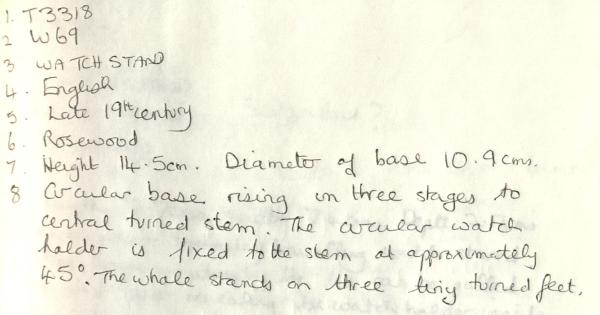 1. T3318
2 W69
3 WATCH STAND
4. English
5. Late 19th century
6. Rosewood
7. Height 14.5cm. Diameter of base 10.9cms.
8 Circular base rising in three stages to
central turned stem. The circular watch
holder is fixed to the stem at approximately
45°. The whole stands on three tiny turned feet.